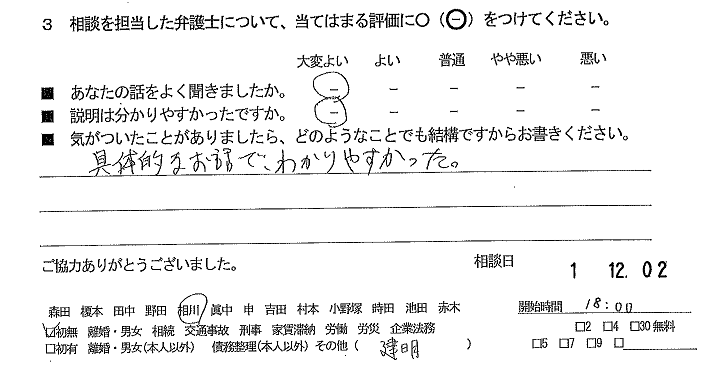 3 相談を担当した弁護士について、当てはまる評価に○（⊖）をつけてください。
大変よい よい 普通 やや悪い 悪い
■ あなたの話をよく聞きましたか。 － － － － －
■ 説明は分かりやすかったですか。 － － － － －
■ 気がついたことがありましたら、どのようなことでも結構ですからお書きください。
具体的なお話で、わかりやすかった。
ご協力ありがとうございました。
相談日 1 12.02
森田 榎本 田中 野田 相川 眞中 申 吉田 村本 小野塚 時田 池田 赤木
開始時間 18:00
□初無 離婚・男女 相続 交通事故 刑事 家賃滞納 労働 労災 企業法務
□2 □4 □30無料
□初有 離婚・男女(本人以外) 債務整理(本人以外) その他（ 建明 ）
□5 □7 □9 □